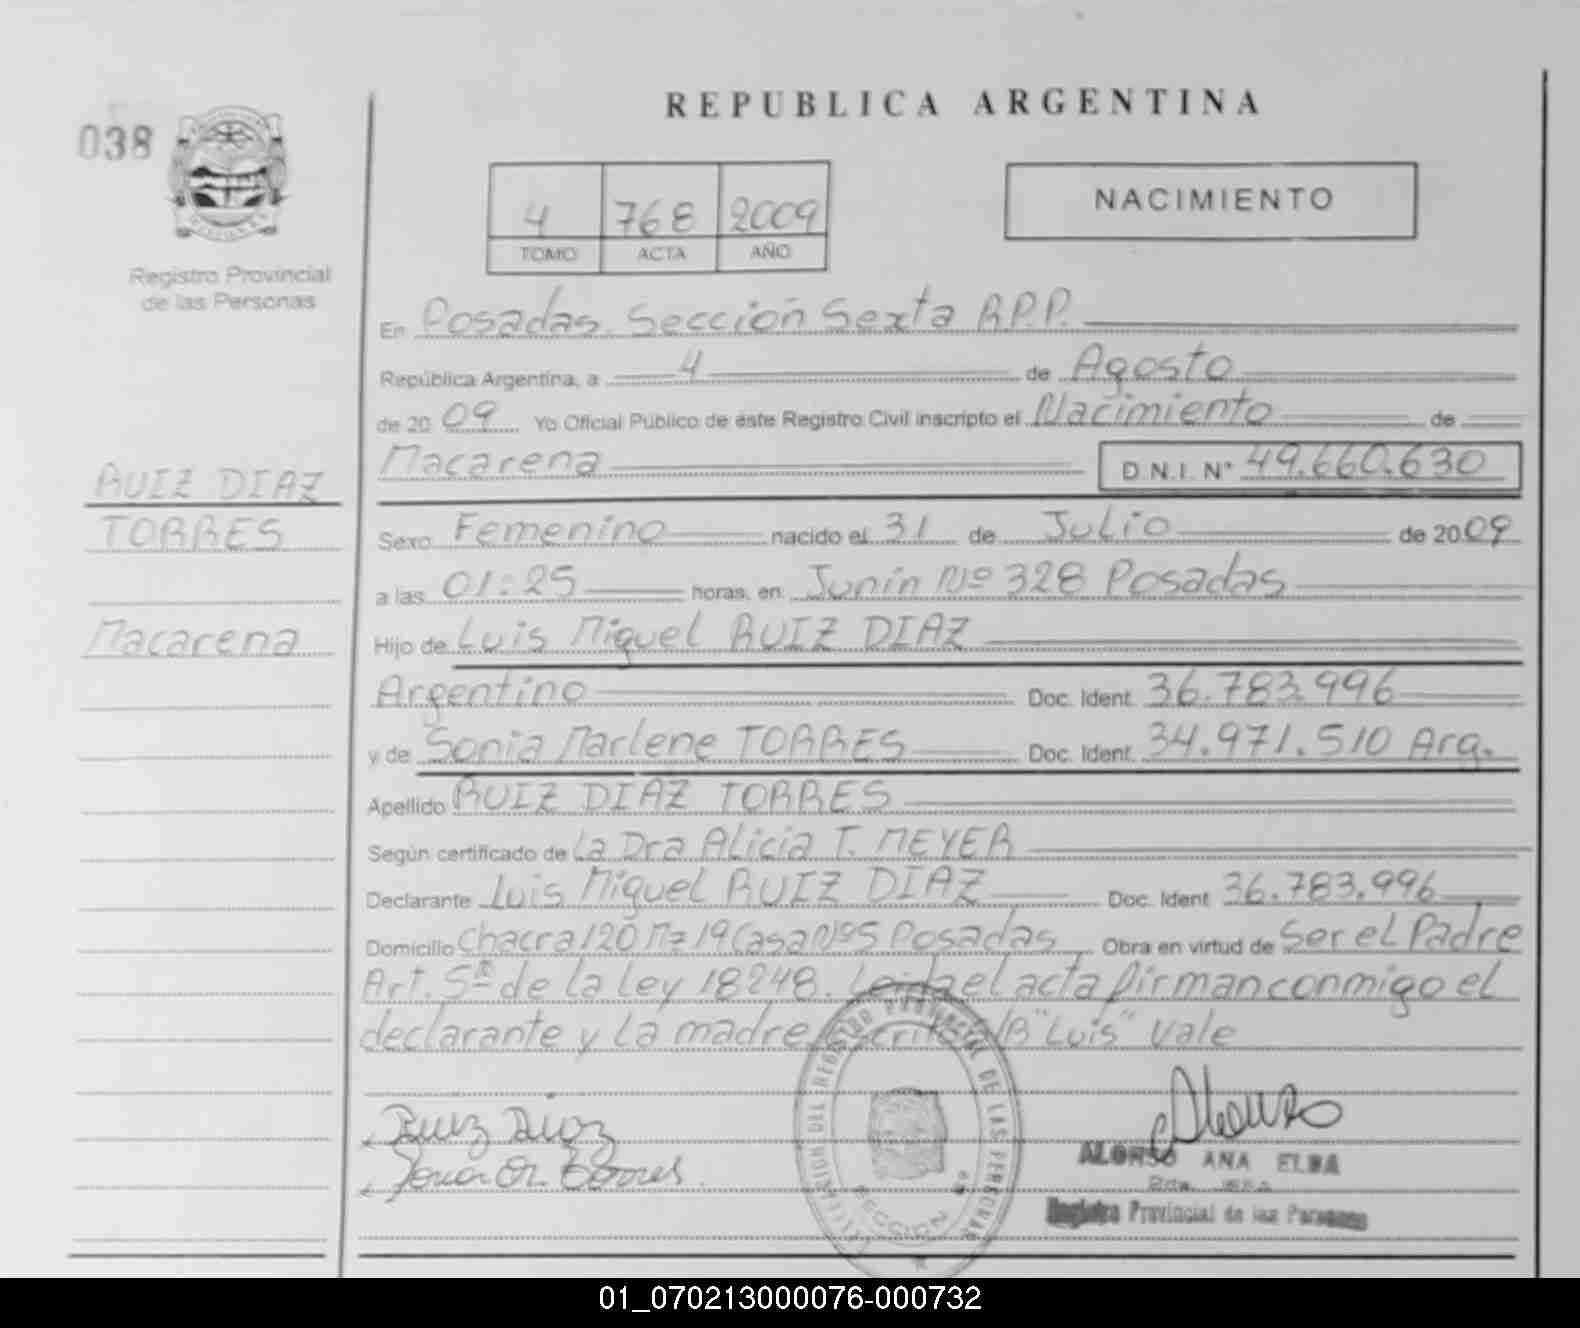 038
REPUBLICA ARGENTINA
4 768 2009
TOMO ACTA AÑO
NACIMIENTO
Registro Provincial
de las Personas
En Posadas. Sección Sexta R.P.P.
República Argentina, a 4 de Agosto
de 2009 Yo Oficial Público de éste Registro Civil inscripto el Nacimiento de
Macarena D.N.I. N° 49.660.630
RUIZ DIAZ
TORRES
Macarena
Sexo Femenino nacido el 31 de Julio de 2009
a las 01:25 horas, en Junín Nº 328 Posadas
Hijo de Luis Miguel RUIZ DIAZ
Argentino Doc. Ident. 36.783.996
y de Sonia Marlene TORRES Doc. Ident. 34.971.510 Arg.
Apellido RUIZ DIAZ TORRES
Según certificado de La Dra Alicia T. MEYER
Declarante Luis Miguel RUIZ DIAZ Doc. Ident 36.783.996
Domicilio Chacra 120 Mz 19 Casa Nº5 Posadas Obra en virtud de Ser el Padre
Art. 5º de la Ley 18248. Leída el acta firman conmigo el
declarante y la madre. Escrito S/B "Luis" Vale
Ruiz Diaz
Torres
ALONSO ANA ELBA
Registro Provincial de las Personas
DEL REGISTRO PROVINCIAL DE LAS PERSONAS
SECCION 6ª
01_070213000076-000732